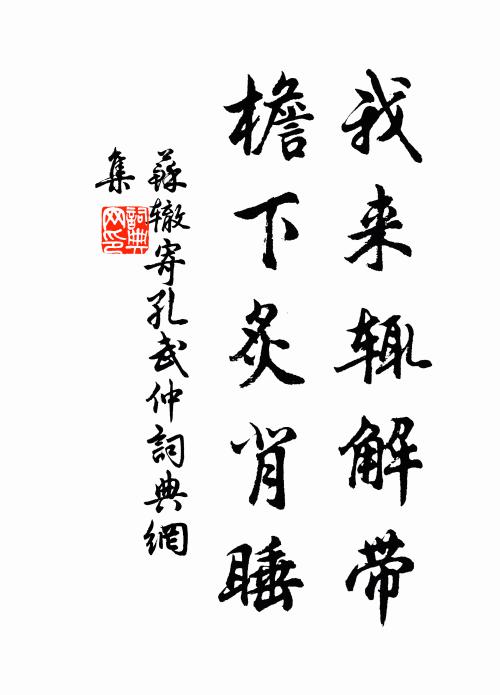 我来辄解带
檐下炙背睡
蘇辙寄孔武仲詞典網
集
詞典网印